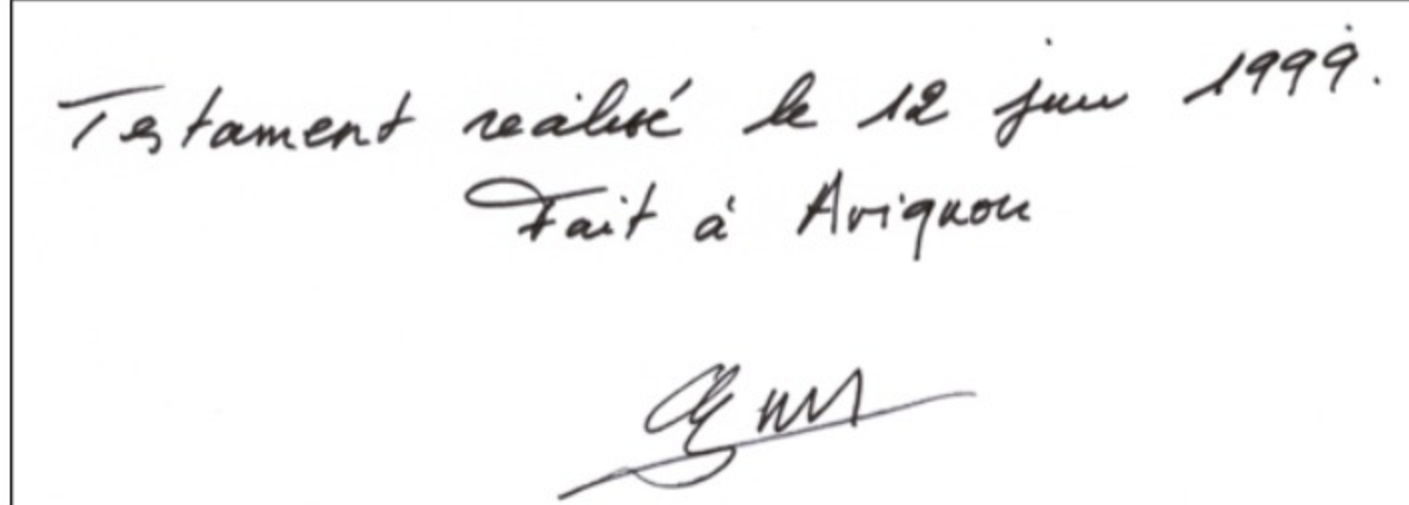 Testament réalisé le 12 juin 1999.
Fait à Avignon